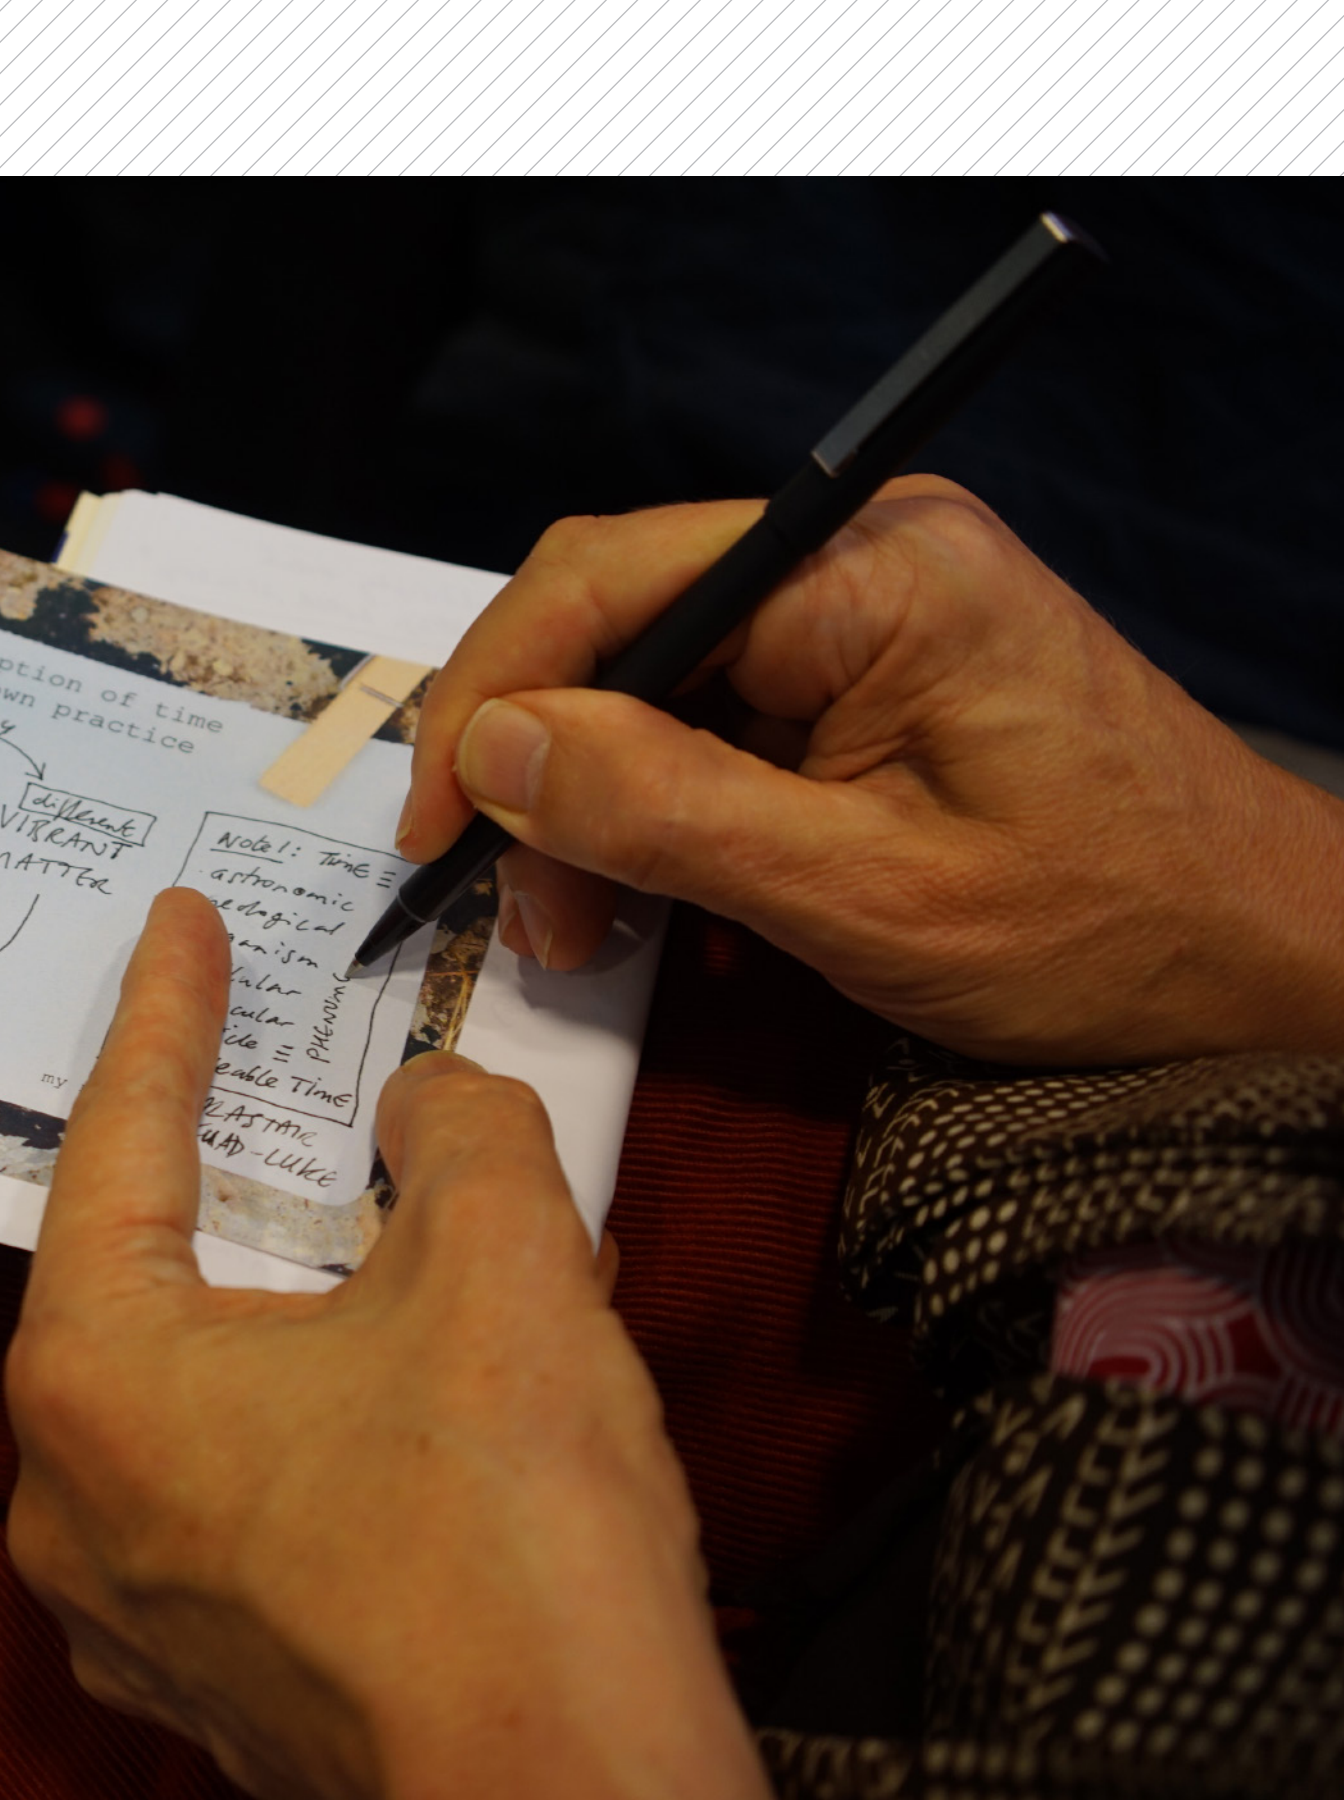 ption of time
wn practice
different
VIBRANT
MATTER
Note 1: TimE ≡
astronomic
eological
ganism
lular
cular
≡ PHENOM
eable TimE
my
LASTAIR
UAD-LUKE